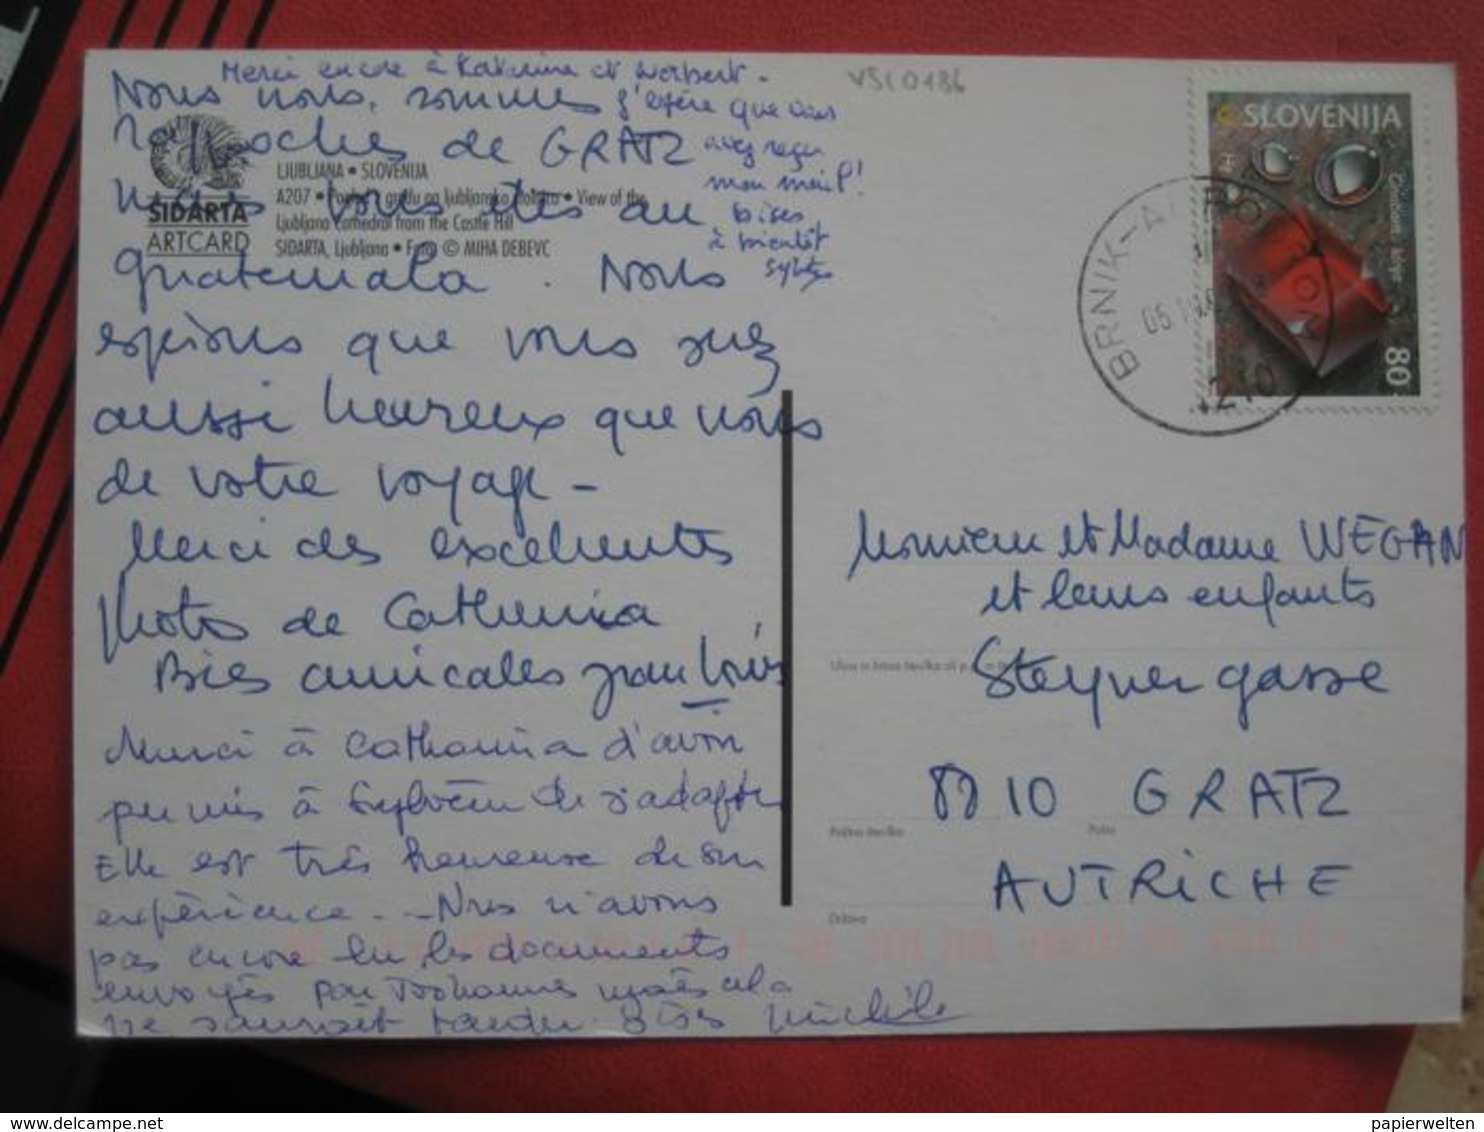 Merci encore à Katerina et Norbert -
j'espère que vous
avez reçu
mon mail !
bises
à bientôt
Nous nous sommes
proches de GRATZ
Mais vous êtes au
Guatemala. Nous
espérons que vous serez
aussi heureux que nous
de votre voyage -
Merci des excellentes
photos de Catherina
Bises amicales Jean Louis
Merci à Catharina d'avoir
permis à Sylvène de s'adapter
Elle est très heureuse de son
expérience. - Nous n'avons
pas encore lu les documents
envoyés par Johannes mais cela
ne saurait tarder. Bises Michèle
SIDARTA
ARTCARD
LJUBLJANA • SLOVENIJA
A207 • Pogled z gradu na ljubljansko stolnico • View of the
Ljubljana Cathedral from the Castle Hill
SIDARTA, Ljubljana • Foto © MIHA DEBEVC
VSLO186
SLOVENIJA
80
BRNIK-AERO
Monsieur et Madame WEGAN
et leurs enfants
Ulica in hišna številka ali p.p.
Steyrergasse
8010 GRATZ
Poštna številka
Pošta
AUTRICHE
Država
papierwelten